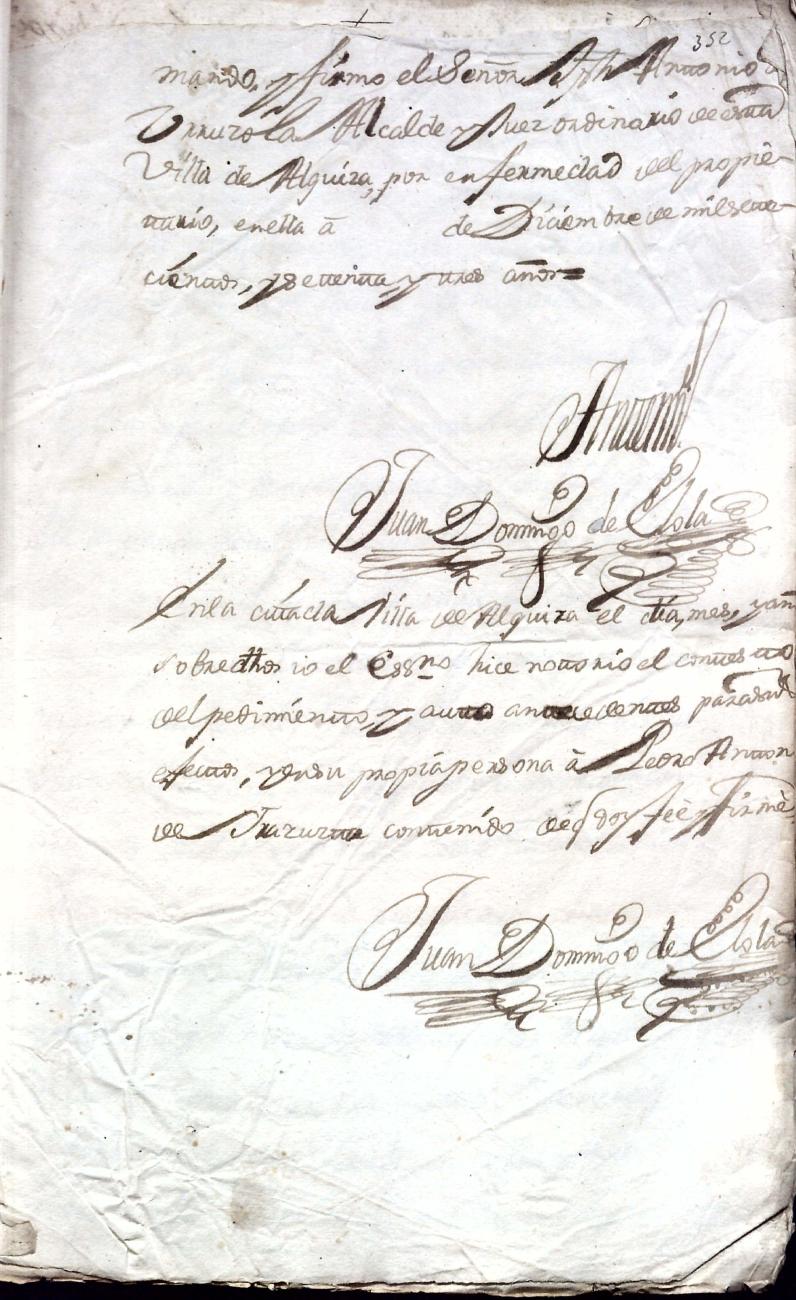 352
mando, y firmo el Señor Antonio
Urruzola Alcalde y Juez ordinario de esta
Villa de Alquiza, por enfermedad del propie-
tario, en ella á de Diciembre de mil sete-
cientos, y setenta y tres años=
Juan Domingo de Elola
En la citada Villa de Alquiza el dia, mes, y año
sobredhos io el Essno hice notorio el contesto
del pedimiento, y auto antecedentes para sus
efectos, y en su propia persona à Pedro Anton
de Irazuzta contenido de q doy feè y firmè
Juan Domingo de Elola